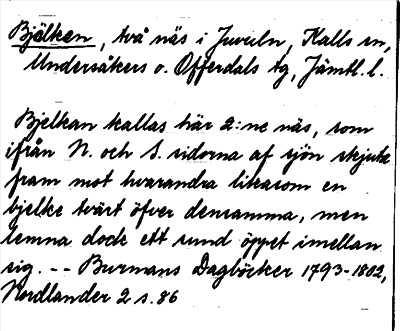 Bjälken, två näs i Juveln, Kalls sn,
Undersåkers o. Offerdals tg, Jämtl. l.
Bjelkan kallas här 2:ne näs, som
ifrån N. och S. sidorna af sjön skjuta
fram mot hvarandra likasom en
bjelke tvärt öfver densamma, men
lemna dock ett sund öppet imellan
sig. -- Burmans Dagböcker 1793-1802,
Nordlander 2 s. 86